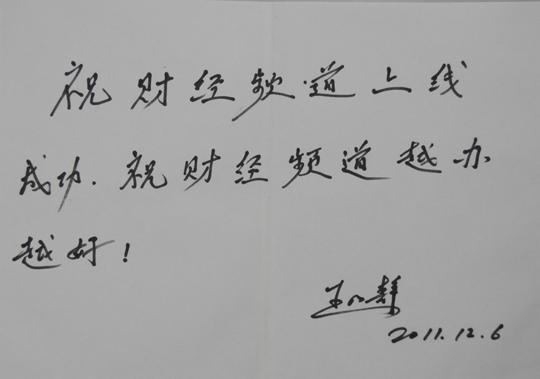 祝财经频道上线
成功.祝财经频道越办
越好!
2011.12.6